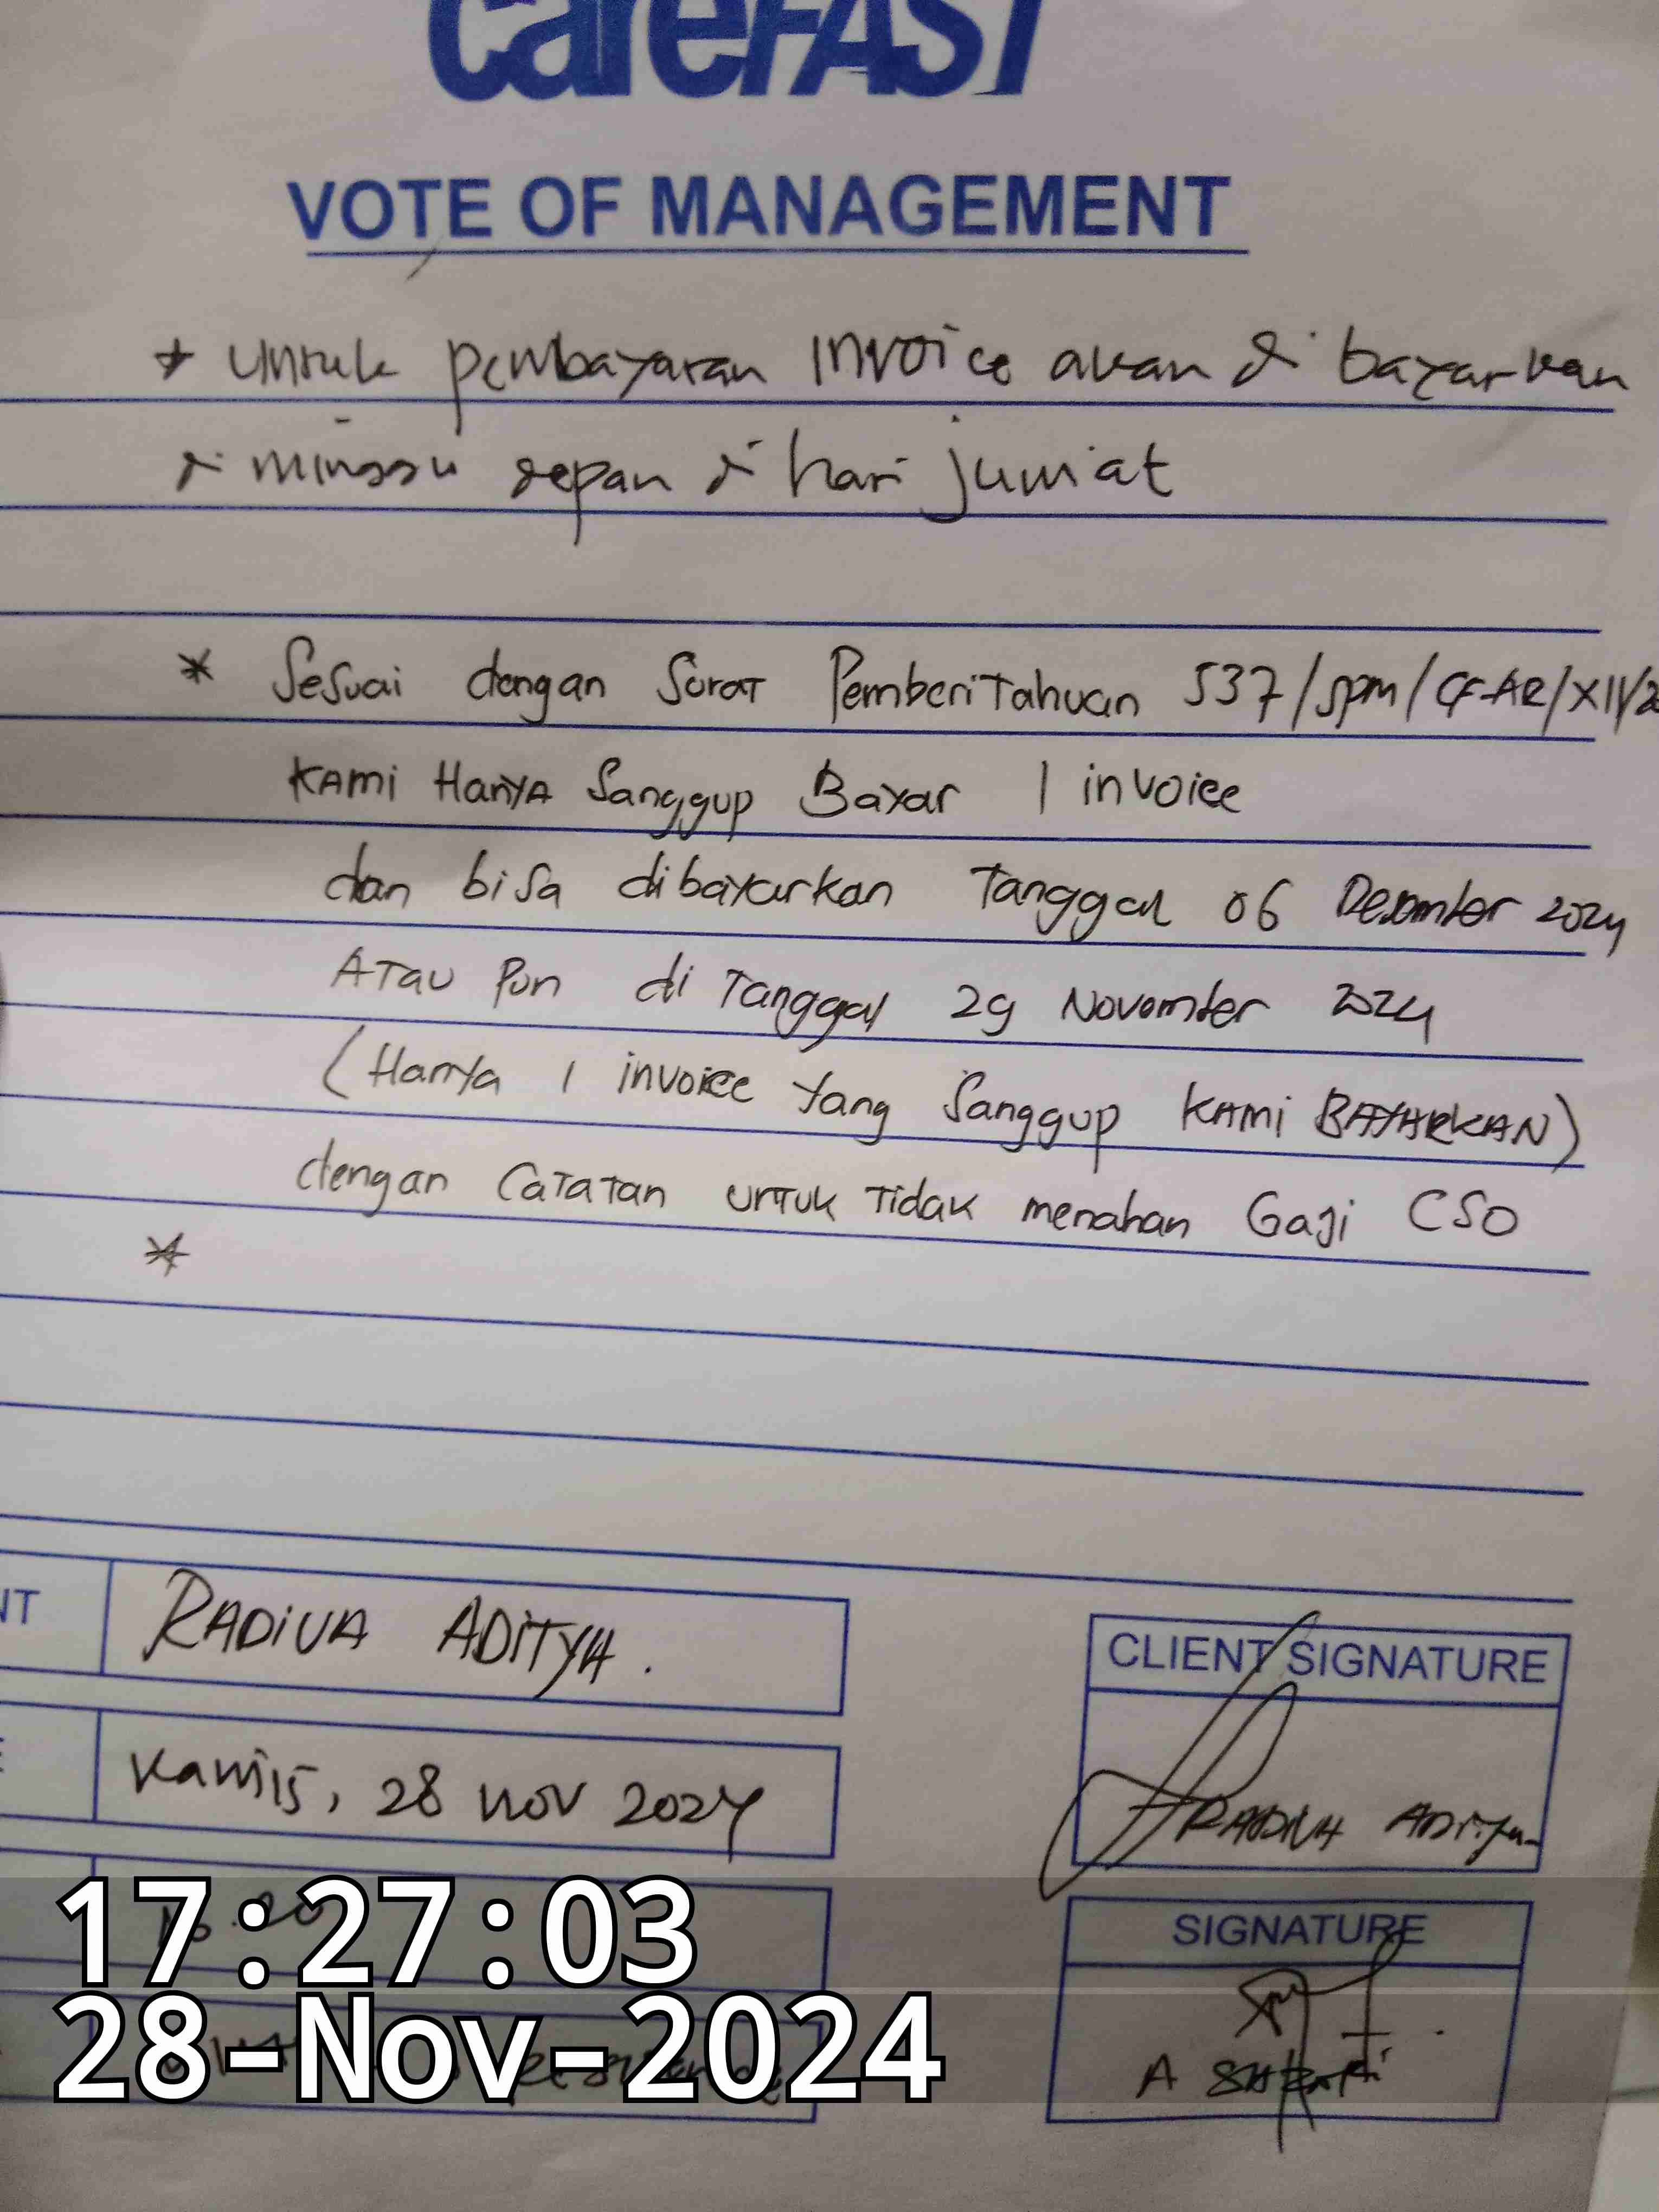 careFAST
VOTE OF MANAGEMENT
* Untuk pembayaran invoice akan di bayarkan
di minggu depan di hari jum'at
* Sesuai dengan Surat Pemberitahuan 537/SPM/CF-AR/XII/2
Kami Hanya Sanggup Bayar 1 invoice
dan bisa dibayarkan Tanggal 06 Desember 2024
Atau Pun di Tanggal 29 November 2024
(Hanya 1 invoice yang Sanggup Kami BAYARKAN)
dengan Catatan untuk Tidak menahan Gaji CSO
*
NT
RADIVA ADITYA.
CLIENT SIGNATURE
E
Kamis, 28 Nov 2024
RADIVA ADITYA
17:27:03
SIGNATURE
28-Nov-2024
A